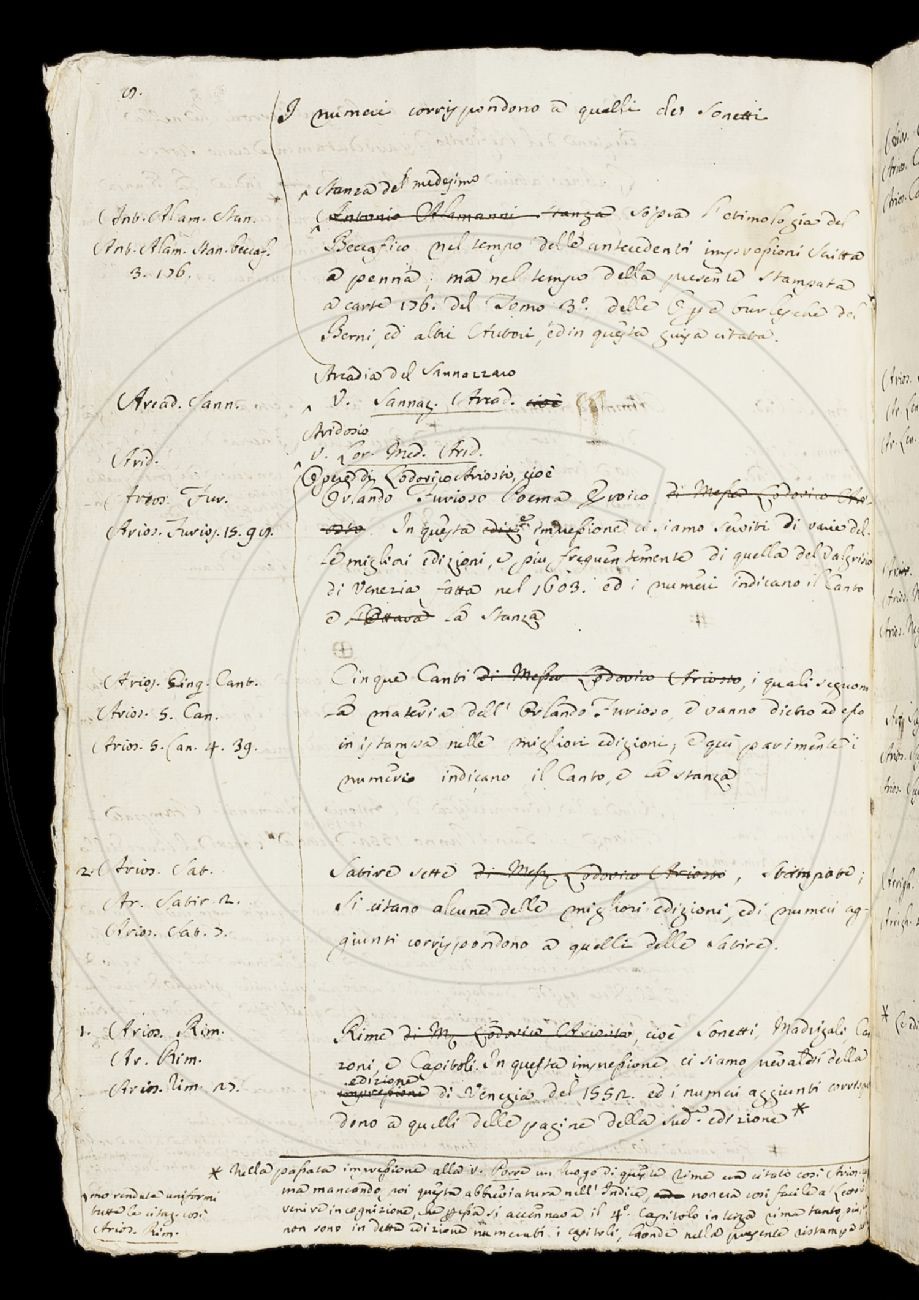 I numeri corrispondono a quelli dei Sonetti
Stanza del medesimo
Ant. Alam. Stan.
Antonio Alamanni Stanza sopra l'etimologia del
Ant. Alam. Stan. beccaf.
3. 176.
Beccafico nel tempo delle antecedenti impressioni scritta
a penna; ma nel tempo della presente stampata
a carte 176. del Tomo 3.º delle Opere burlesche del
Berni, ed altri Autori, ed in questa guisa citata.
Arcadia del Sannazzaro
Arcad. Sann.
V. Sannaz. Arcad. cioè
Aridosio
Arid.
V. Lor. Med. Arid.
Opere di Lodovico Ariosto, cioè
Arios. Fur.
Orlando Furioso Poema Eroico di Messer Lodovico Ari-
Arios. Furios. 15. 99.
osto. In questa ediz.e impressione ci siamo serviti di varie del-
le migliori edizioni, e più frequentemente di quella del Valgrisio
di Venezia fatta nel 1603. ed i numeri indicano il Canto
e l'Ottava la Stanza
Arios. Cinq. Cant.
Arios. 5. Can.
Arios. 5. Can. 4. 39.
Cinque Canti di Messer Lodovico Ariosto, i quali seguono
la materia dell'Orlando Furioso, e vanno dietro ad esso
in istampa nelle migliori edizioni, e quì parimente i
numeri indicano il Canto, e la stanza
2. Arios. Sat.
Ar. Satir. 2.
Arios. Sat. 7.
Satire sette di Mess. Lodovico Ariosto, stampate;
Si citano alcune delle migliori edizioni, ed i numeri ag-
giunti corrispondono a quelli delle satire.
1. Arios. Rim.
Ar. Rim.
Arios. rim. 27.
Rime di M. Lodovico Ariosto, cioè Sonetti, Madrigali Can
zoni, e Capitoli. In questa impressione ci siamo prevalsi della
edizione
impressione di Venezia del 1552. ed i numeri aggiunti corrispon
dono a quelli delle pagine della sud.a edizione *
* Nella passata impressione alla v. Torre un luogo di queste rime era citato così Arios.
ma mancando poi questa abbreviatura nell'Indice, non era così facile a
venire in cognizione, che si accennava il 4.º Capitolo in terza rima tanto più
non sono in detta edizione numerati i capitoli, laonde nella presente ristampa
mo renduta uniforme
tutta la citaz. così
Arios. Rim.